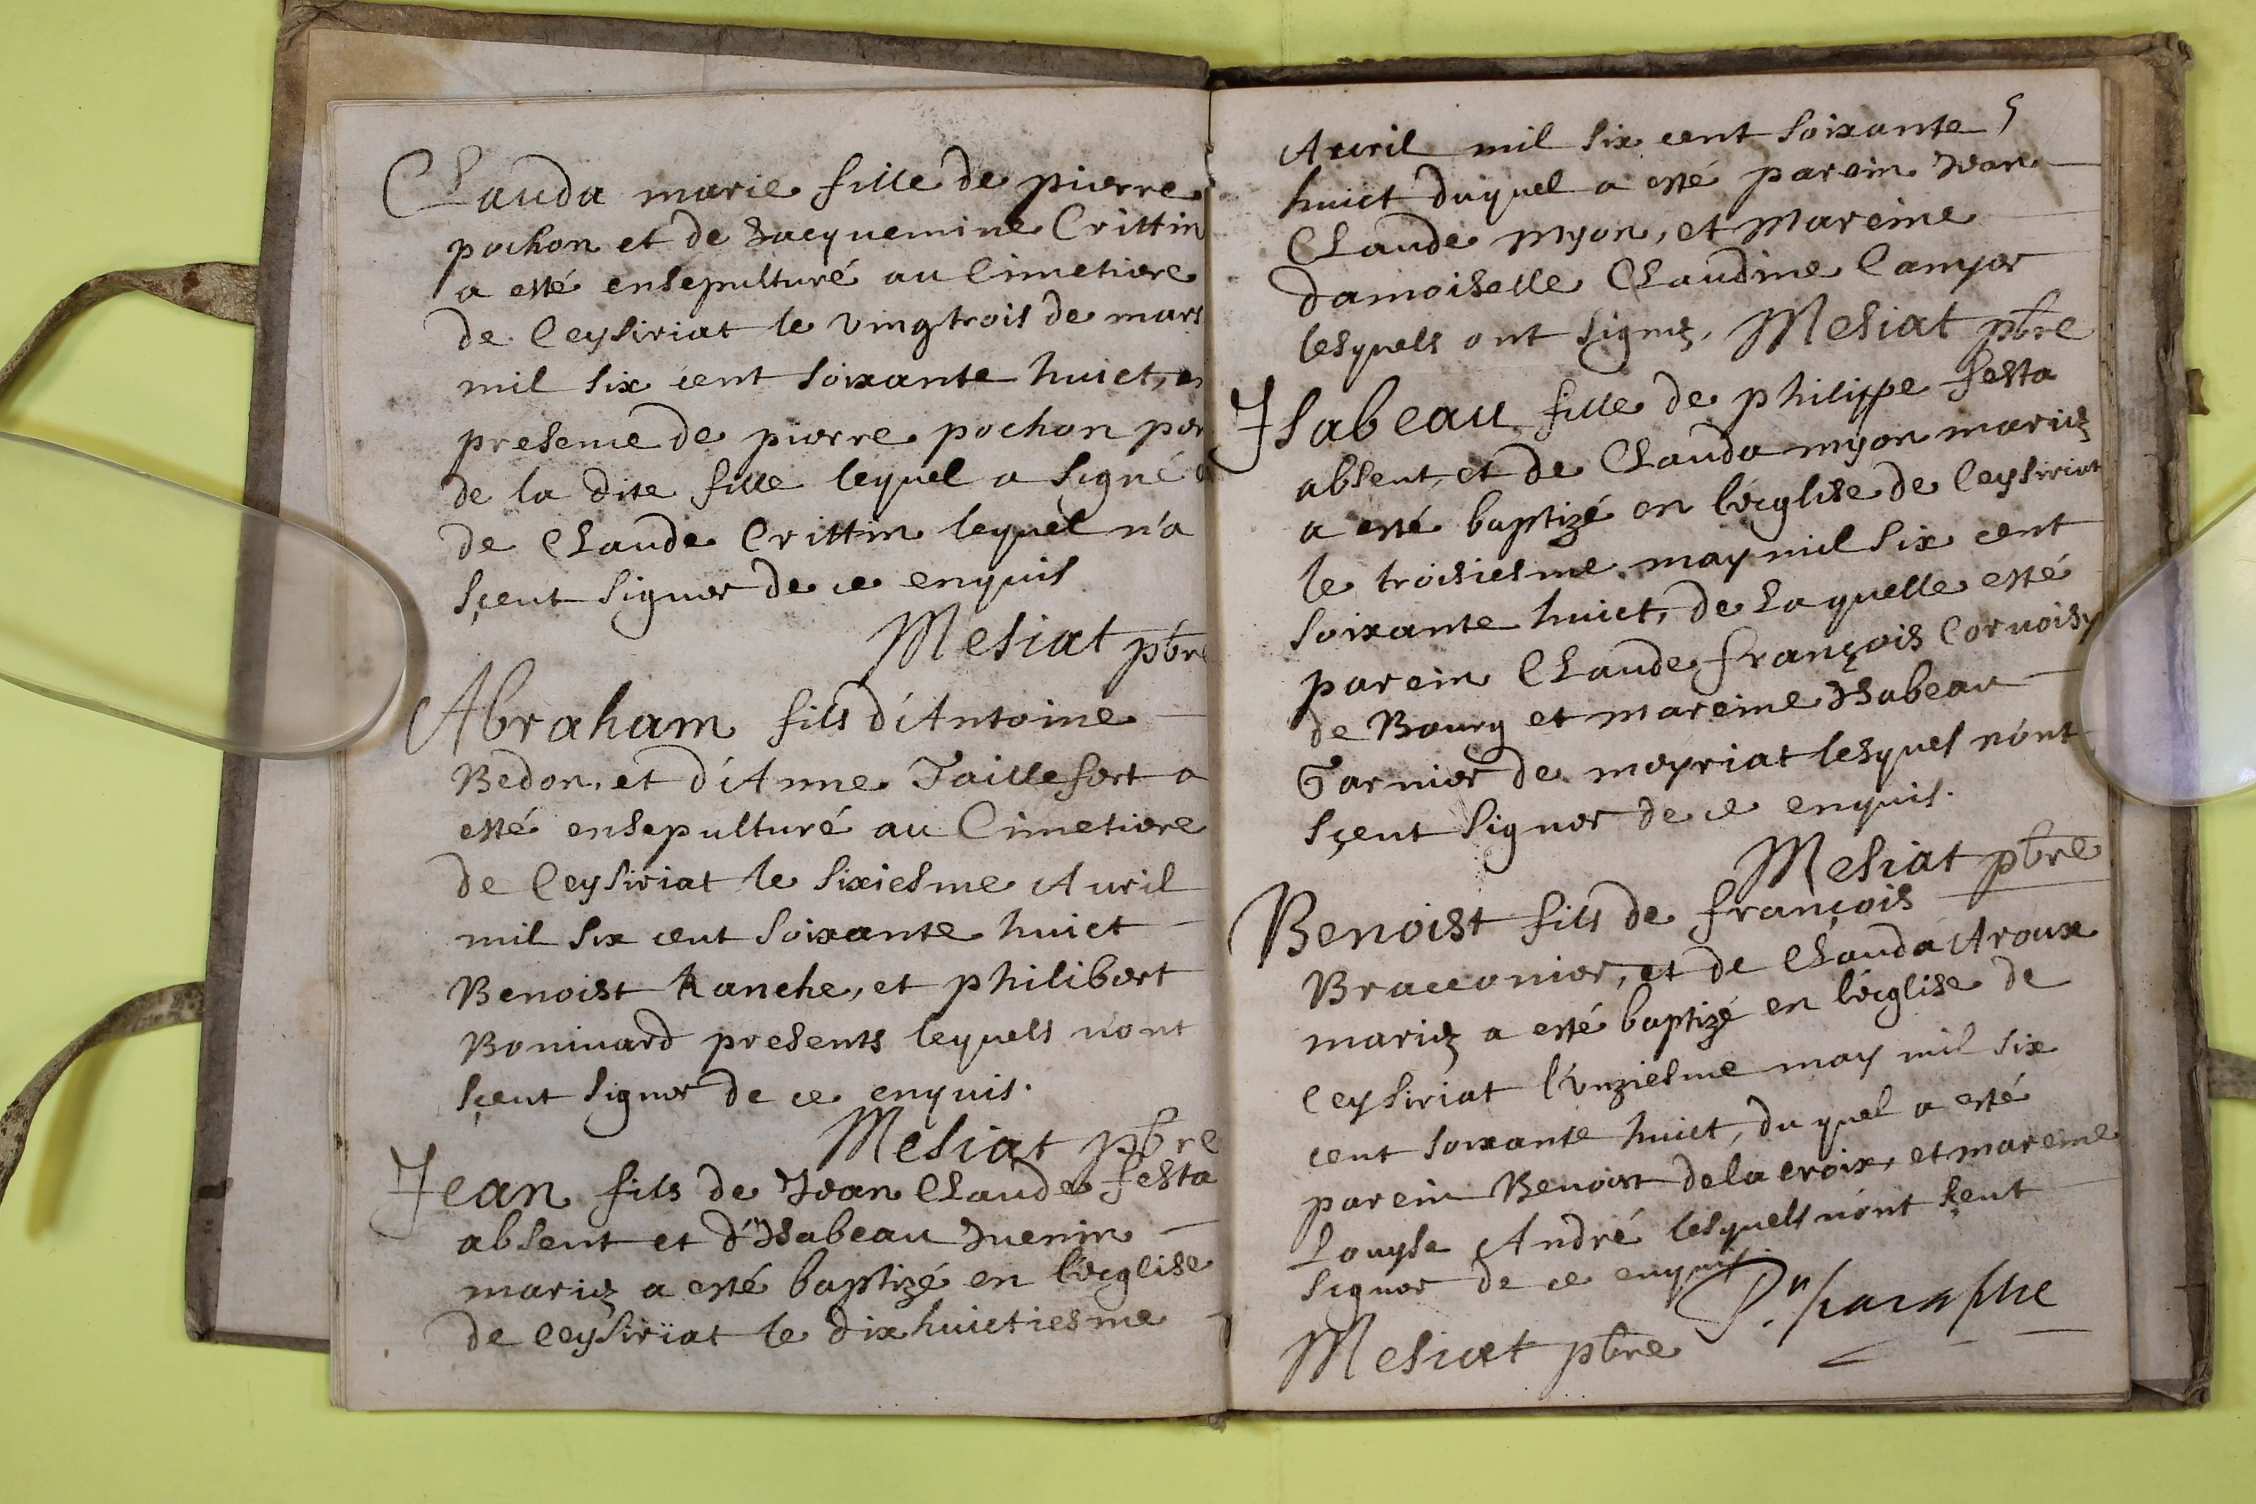 Clauda marie fille de pierre
pochon et de Jacquemine Crittin
a esté ensepulturé au Cimetiere
de Ceysiriat le vingtrois de mars
mil six cent soixante huict, en
presence de pierre pochon per
de la dite fille lequel a signé
de Claude Crittin lequel n'a
sçeut signer de ce enquis
Mesiat pbre
Abraham fils d'Antoine
Bedon, et d'Anne Taillefert a
esté ensepulturé au Cimetiere
de Ceysiriat le sixiesme Avril
mil six cent soixante huict
Benoist Ranche, et philibert
Bonivard presents lequels n'ont
sçeut signer de ce enquis.
Mesiat pbre
Jean fils de Jean Claude festa
absent et d'Isabeau Juenin
mariez a esté baptizé en l'ecglise
de Ceysiriat le dixhuictiesme
Avvril mil six cent soixante 5
huict duquel a esté parein Jean
Claude myon, et Mareine
damoiselle Claudine Canyer
lesquels ont signez. Mesiat pbre
Isabeau fille de philippe festa
absent, et de Clauda myon mariez
a esté baptizé en l'ecglise de Ceysiriat
le troisiesme may mil six cent
soixante huict, de Laquelle esté
parein Claude françois Corvoisy
de Bourg et mareine Isabeau
Garnier de meyriat lesquel n'ont
sçeut signer de ce enquis.
Mesiat pbre
Benoist fils de françois
Bracconier, et de Clauda Aroux
mariez a esté baptizé en l'ecglise de
Ceysiriat l'unziesme may mil six
cent soixante huict, du quel a esté
parein Benoist delacroix, et mareine
Louyse André lesquels n'ont sçeut
signer de ce enquis
Pr. paraphe
Mesiat pbre